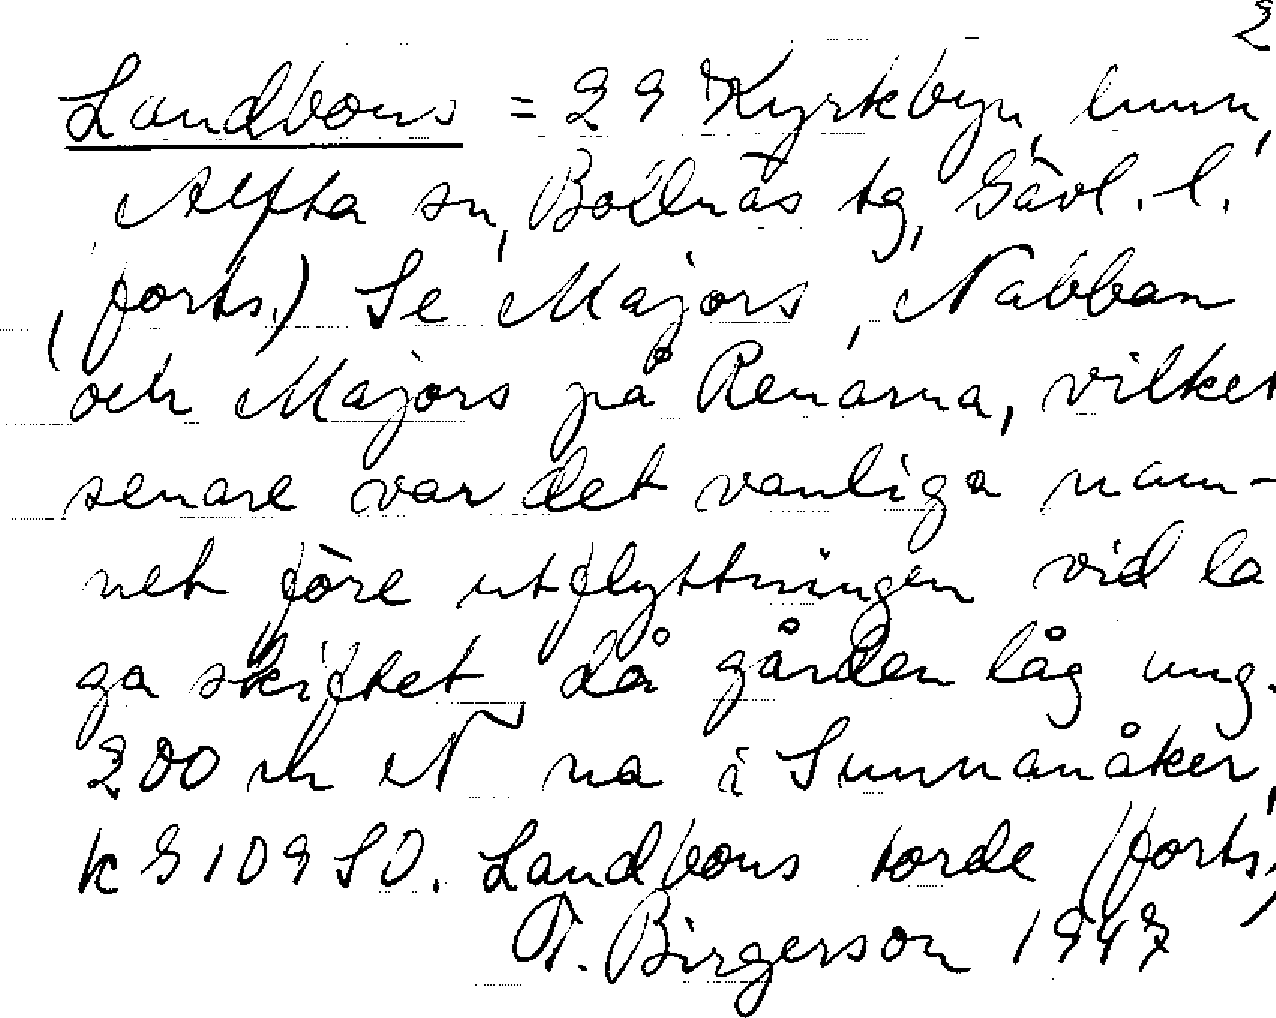 2
Landbons = 29 Kyrkbyn, hmn,
Alfta sn, Bollnäs tg, Gävl. l.
(forts.) Se Majors, Nabban
och Majors på Renarna, vilket
senare var det vanliga nam-
net före utflyttningen vid la
ga skiftet då gården låg ung.
200 m N na i Sunnanåker,
k 9109 SO. Landbons torde (forts,
T. Birgerson 1947